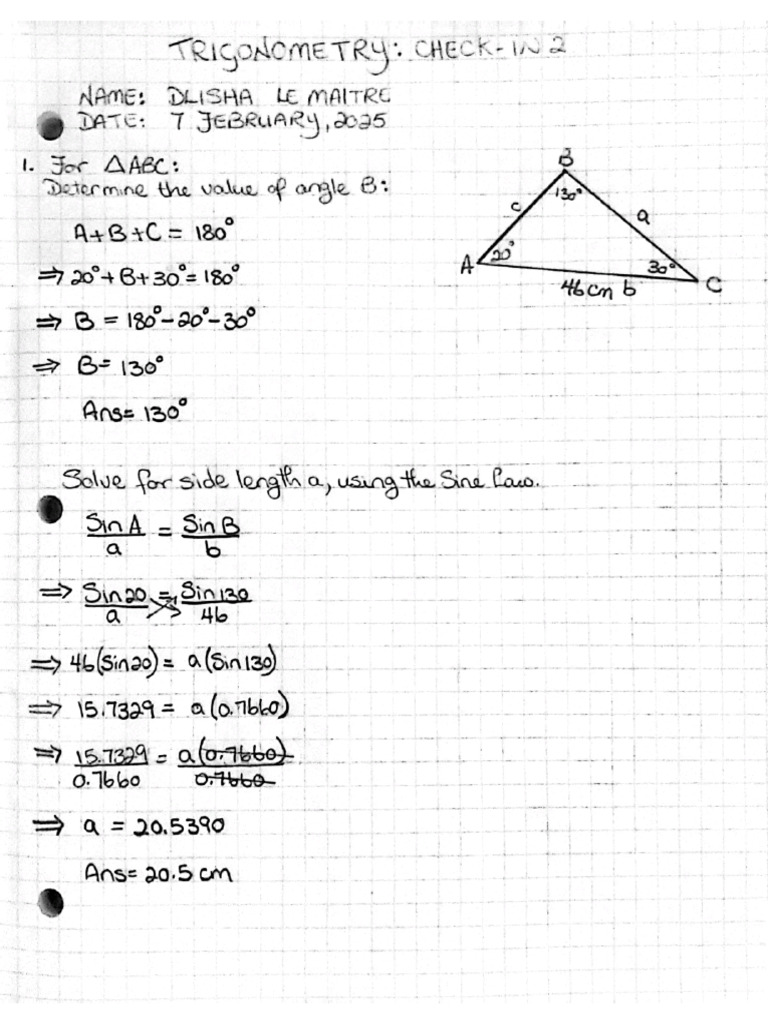 TRIGONOMETRY: CHECK-IN 2
NAME: DLISHA LE MAITRE
DATE: 7 FEBRUARY, 2025
1. For △ABC:
Determine the value of angle B:
A+B+C = 180°
⇒ 20°+B+30°=180°
⇒ B = 180°-20°-30°
⇒ B= 130°
Ans= 130°
B
130°
c
a
A
20°
30°
C
46cm b
Solve for side length a, using the Sine Law.
Sin A / a = Sin B / b
⇒ Sin20 / a = Sin130 / 46
⇒ 46(Sin20) = a(Sin130)
⇒ 15.7329 = a(0.7660)
⇒ 15.7329 / 0.7660 = a(0.7660) / 0.7660
⇒ a = 20.5390
Ans= 20.5 cm